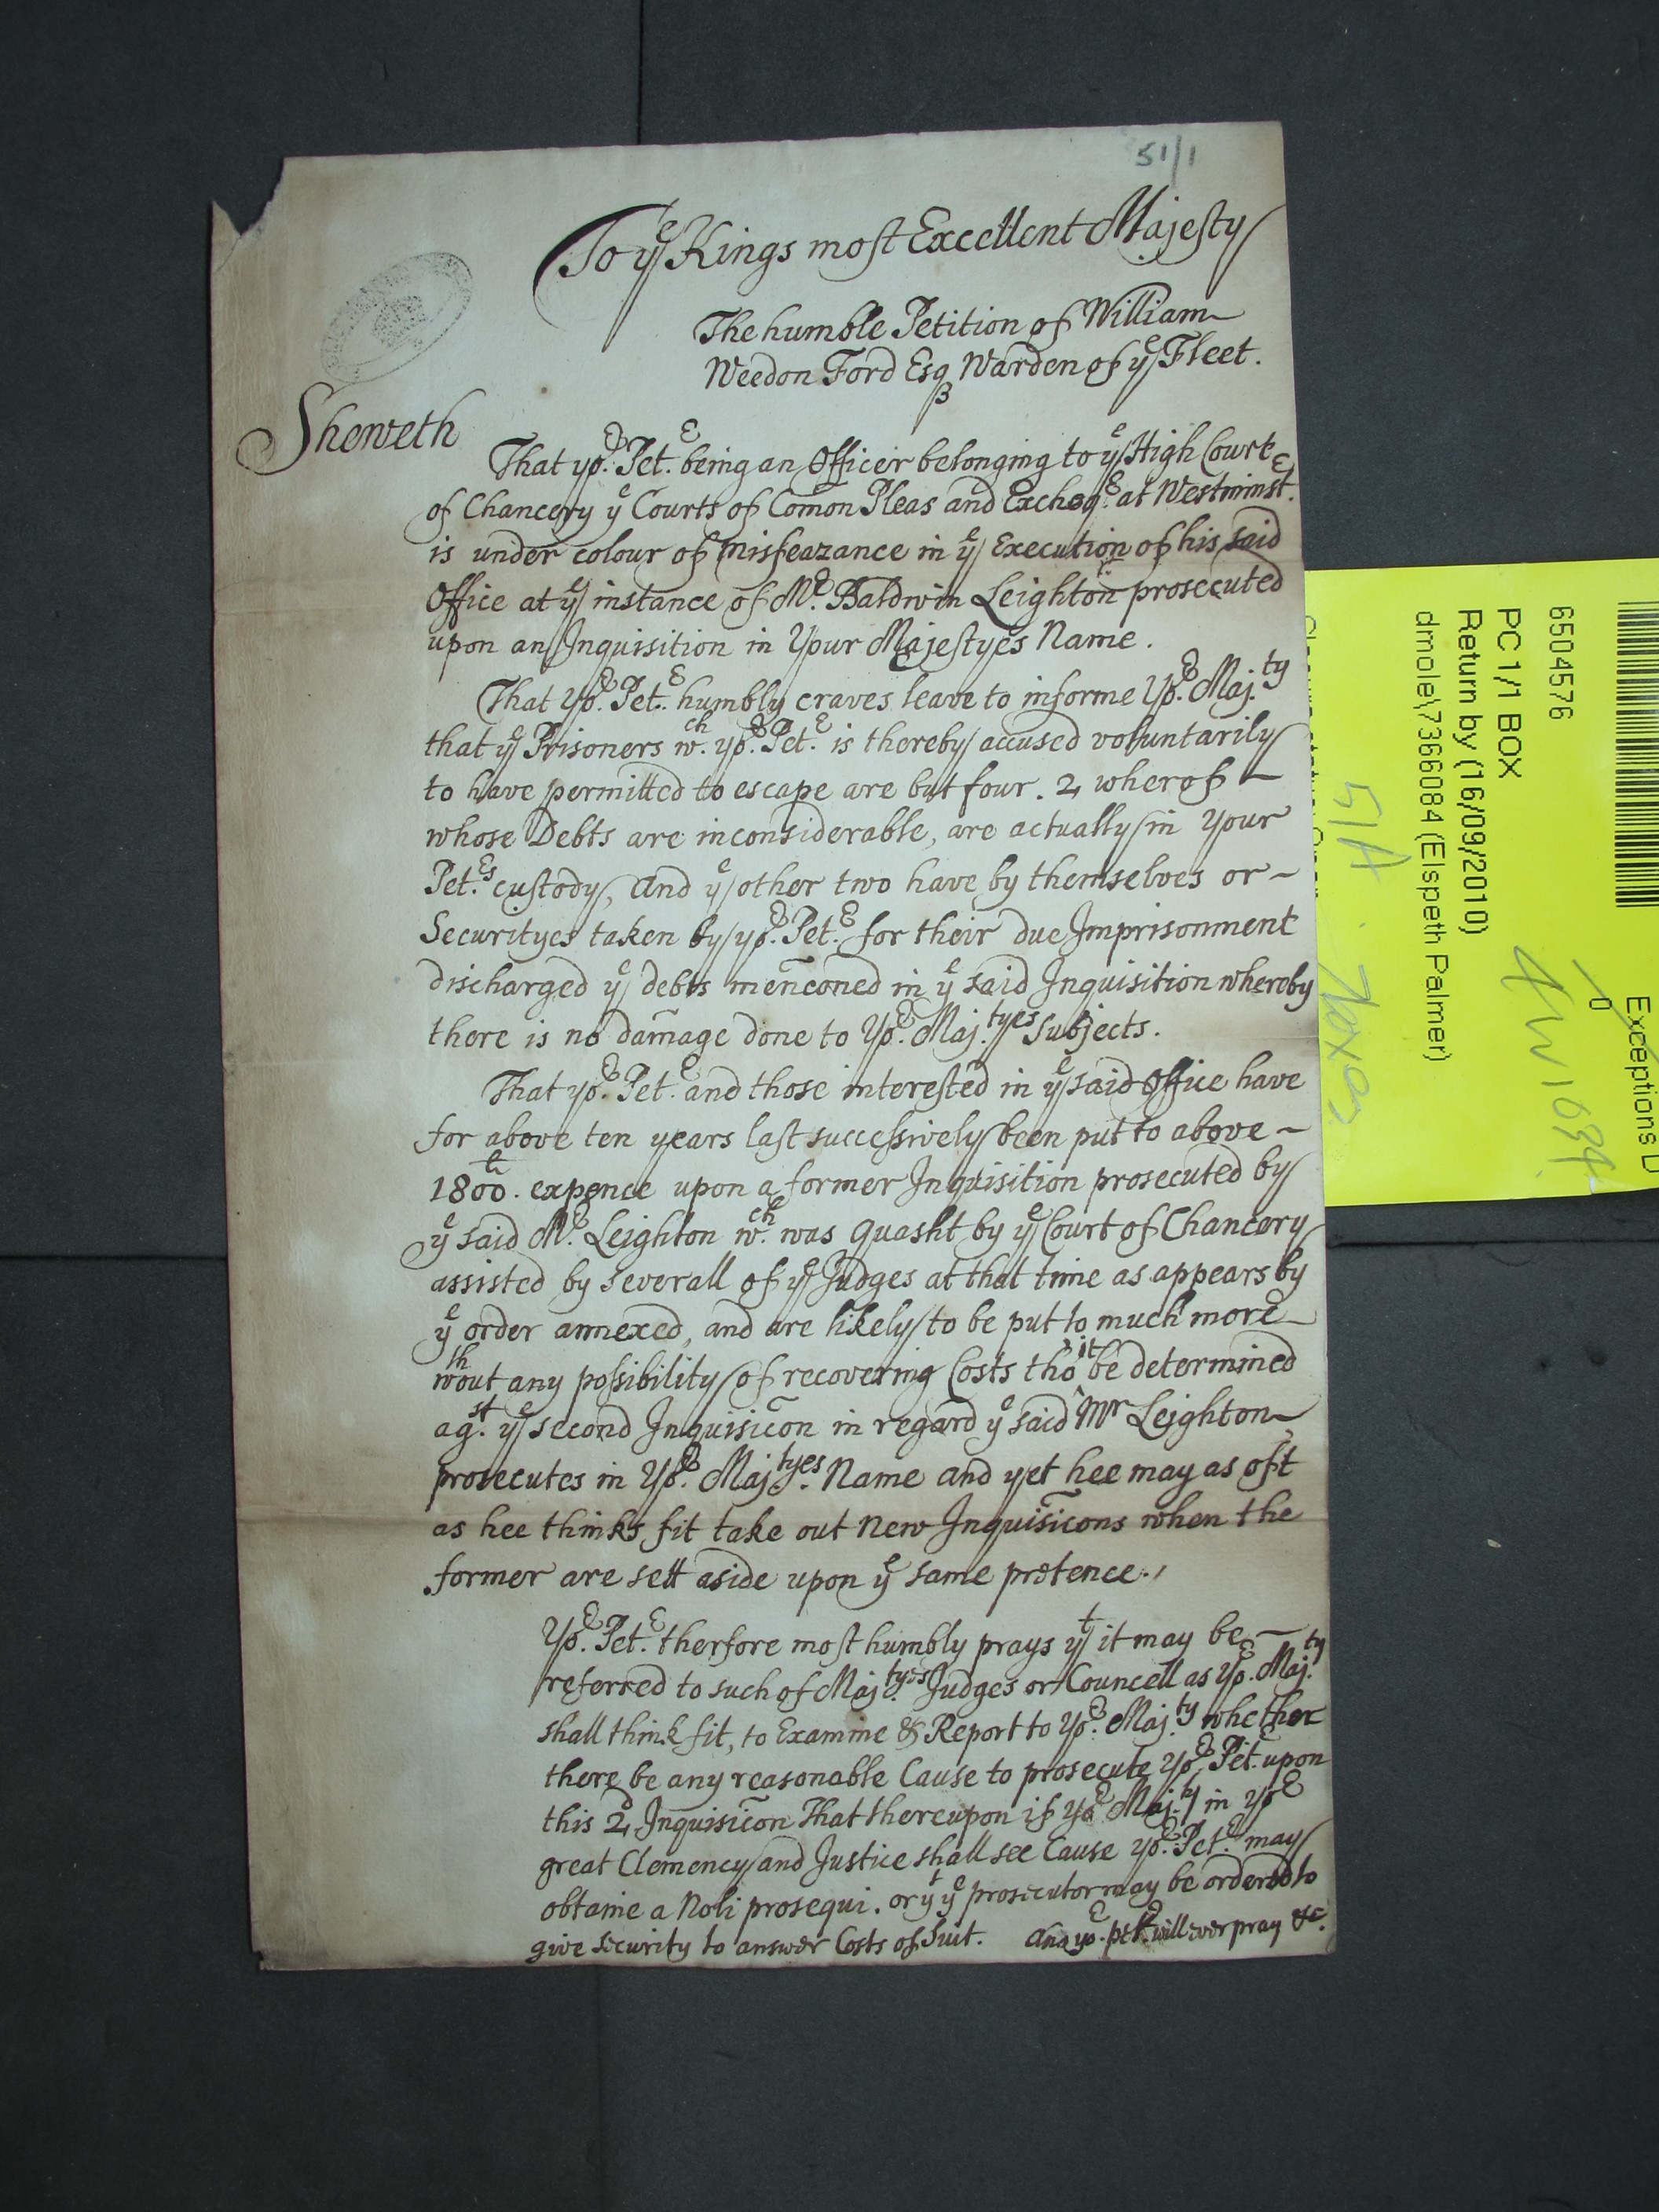 51/1
To ye Kings most Excellent Majesty
The humble Petition of William
Weedon Ford Esqr Warden of ye Fleet.
Sheweth
That yor. Petr. being an Officer belonging to ye High Courte
of Chancery ye Courts of Com̃on Pleas and Excheqr. at Westminstr.
is under colour of misfeazance in ye Execution of his said
Office at ye instance of Mr. Baldwin Leighton prosecuted
upon an Inquisition in Your Majestyes Name.
That Yor. Petr. humbly craves leave to informe Yor. Maj.ty
that ye Prisoners wch. yor. Petr. is thereby accused voluntarily
to have permitted to escape are but four. 2 wherof
whose Debts are inconsiderable, are actually in your
Petrs. custody, and ye other two have by themselves or
Securityes taken by yor. Petr. for their due Imprisonment
discharged ye debts menc̃oned in ye said Inquisition whereby
there is no dam̃age done to Yor. Maj.tyes Subjects.
That yor. Petr. and those interested in ye said Office have
for above ten years last successively been put to above
1800li. expence upon a former Inquisition prosecuted by
ye said Mr. Leighton wch. was quasht by ye Court of Chancery
assisted by severall of ye Judges at that time as appears by
ye order annexed, and are likely to be put to much more
wthout any possibility of recovering Costs tho it be determined
agst. ye second Inquisic̃on in regard ye said Mr Leighton
prosecutes in Yor. Maj.tyes Name and yet hee may as oft
as hee thinks fit take out New Inquisic̃ons when the
former are sett aside upon ye same pretence.
Yor. Petr. therfore most humbly prays yt it may be
referred to such of Maj.tyes Judges or Councell as yor. Maj.ty
shall think fit, to Examine & Report to Yor. Maj.ty whether
there be any reasonable Cause to prosecute Yor. Petr. upon
this 2d Inquisic̃on That thereupon if Yor Maj.ty in yor
great Clemency and Justice shall see Cause yor. Petr. may
obtaine a Noli prosequi. or yt ye prosecutor may be ordered to
give security to answer Costs of Suit. And yor. petr. will ever pray &c.
Exceptions D
0
6504576
PC 1/1 BOX
Return by (16/09/2010)
dmole\7366084 (Elspeth Palmer)
51A